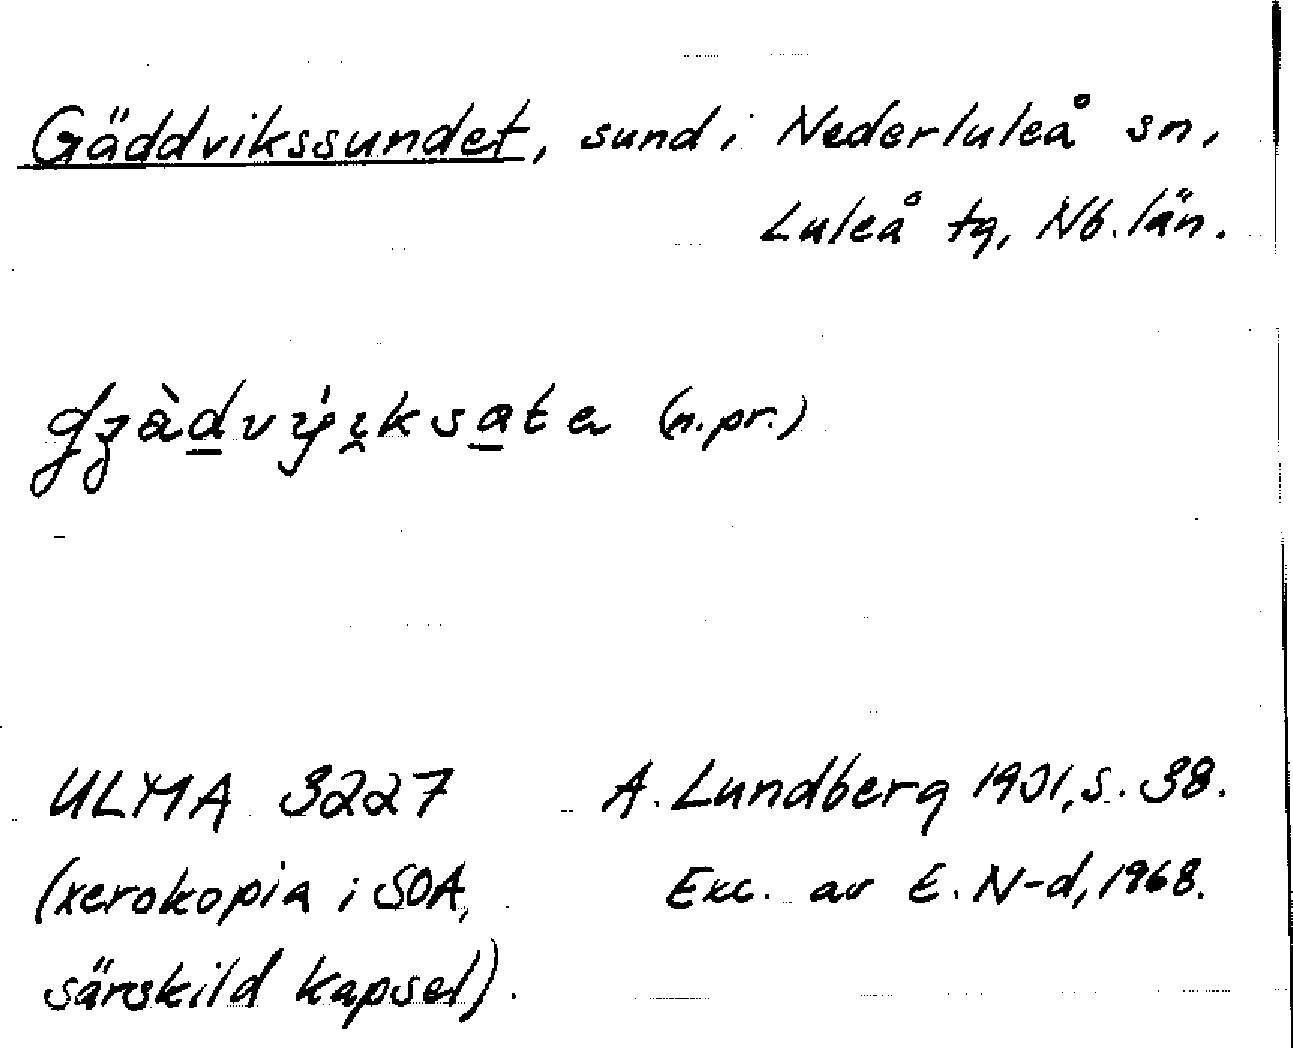 Gäddvikssundet, sund i Nederluleå sn,
Luleå tg, Nb. län.
(n.pr.)
ULMA 3227 A. Lundberg 1901, s. 38.
(xerokopia i SOA, Exc. av E. N-d, 1968.
särskild kapsel).